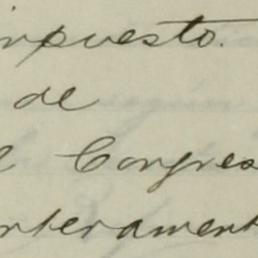 impuesto.
de
l Congres
nterament